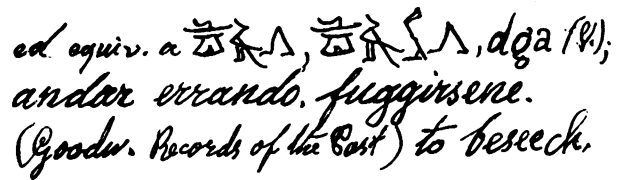 ed equiv. a , , dga (V.);
andar errando, fuggirsene.
(Goodw. Records of the Past) to beseech.